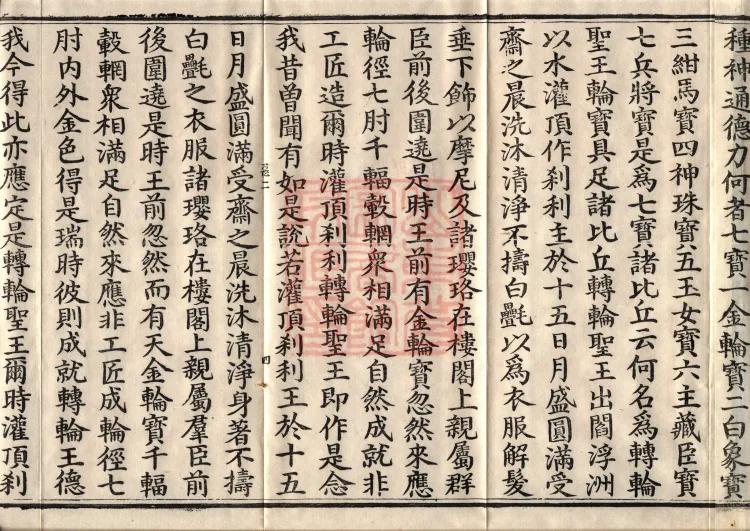 種神通德力何者七寶一金輪寶二白象寶
三紺馬寶四神珠寶五玉女寶六主藏臣寶
七兵將寶是爲七寶諸比丘云何名爲轉輪
聖王輪寶具足諸比丘轉輪聖王出閻浮洲
以水灌頂作刹利主於十五日月盛圓滿受
齋之晨洗沐清淨不擣白㲲以爲衣服解髮
垂下飾以摩尼及諸瓔珞在樓閣上親屬群
臣前後圍遶是時王前有金輪寶忽然來應
輪徑七肘千輻轂輞衆相滿足自然成就非
工匠造爾時灌頂刹利轉輪聖王即作是念
我昔曾聞有如是說若灌頂刹利王於十五
日月盛圓滿受齋之晨洗沐清淨身著不擣
白㲲之衣服諸瓔珞在樓閣上親屬羣臣前
後圍遶是時王前忽然而有天金輪寶千輻
轂輞衆相滿足自然來應非工匠成輪徑七
肘内外金色得是瑞時彼則成就轉輪王德
我今得此亦應定是轉輪聖王爾時灌頂刹